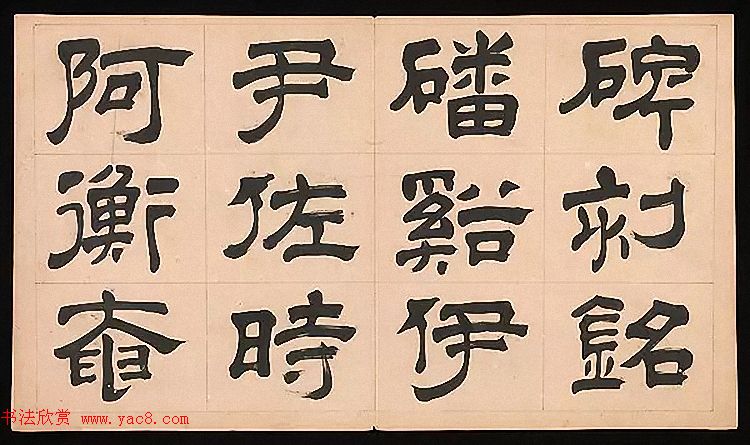 碑刻銘
磻谿伊
尹佐時
阿衡奄
书法欣赏 www.yac8.com